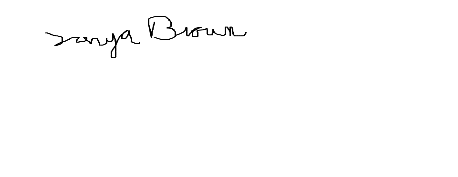 Sonya Brown